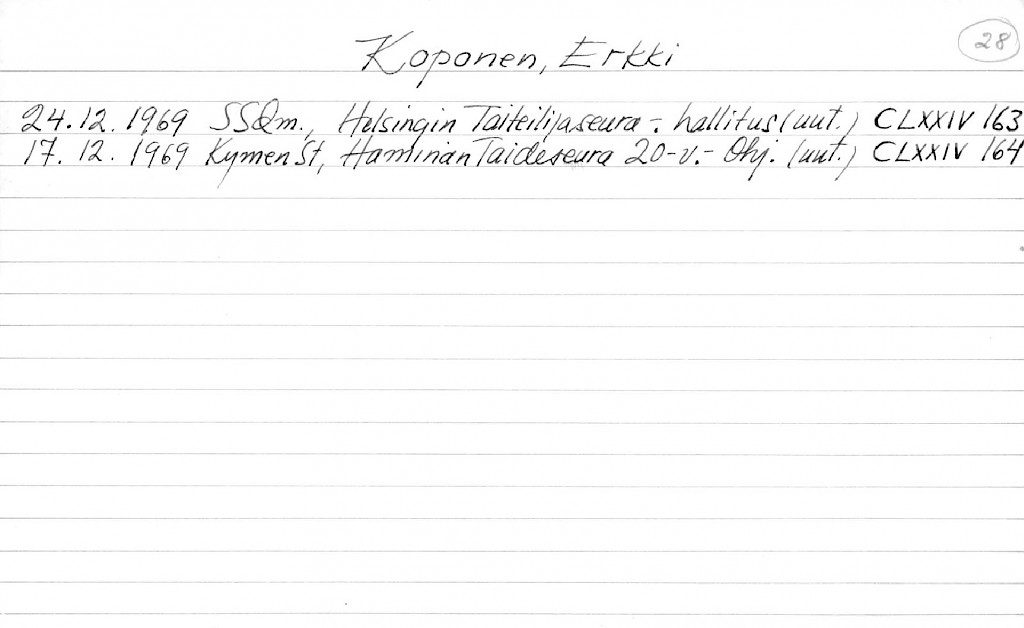 28
Koponen, Erkki
24.12.1969 SSOm., Helsingin Taiteilijaseura - hallitus (uut.) CLXXIV 163
17.12.1969 Kymen St, Haminan Taideseura 20-v. - Ohj. (uut.) CLXXIV 164